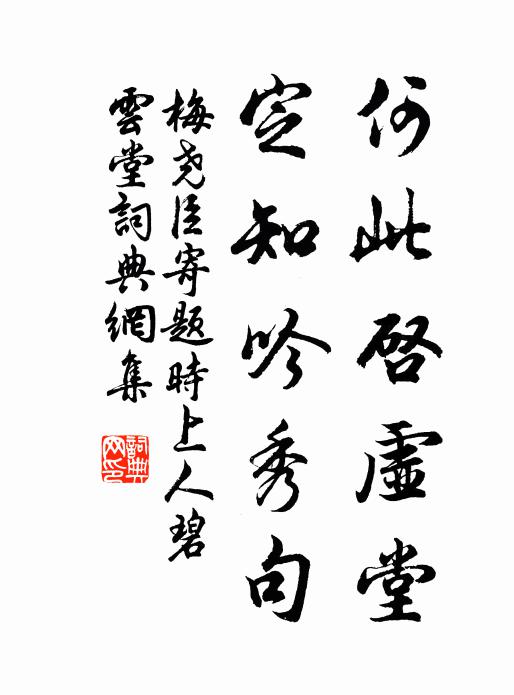 何此啓虛堂
定知吟秀句
梅尧臣寄題時上人碧
雲堂詞典網集
詞典
网印